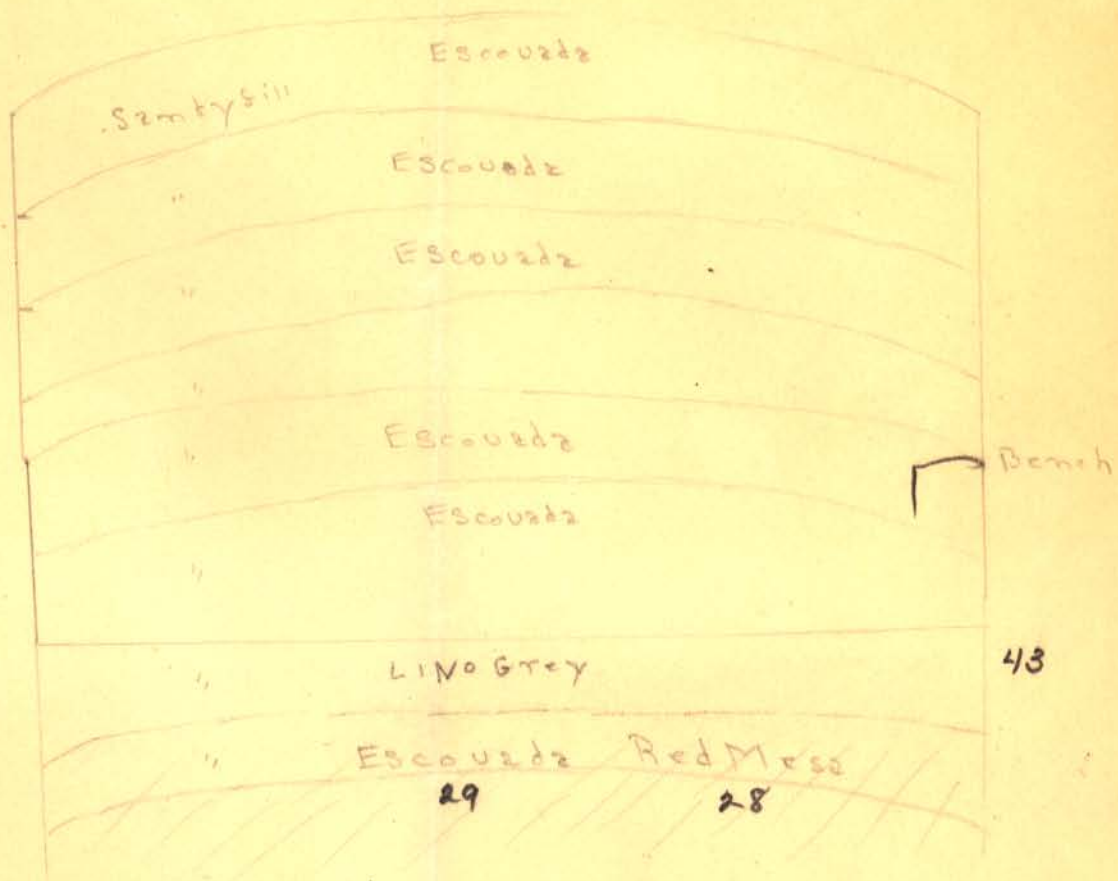 Escovada
Samty Sill
Escovada
"
Escovada
"
"
Escovada
"
Bench
Escovada
"
LINO Grey
43
"
Escovada Red Mesa
"
29 28